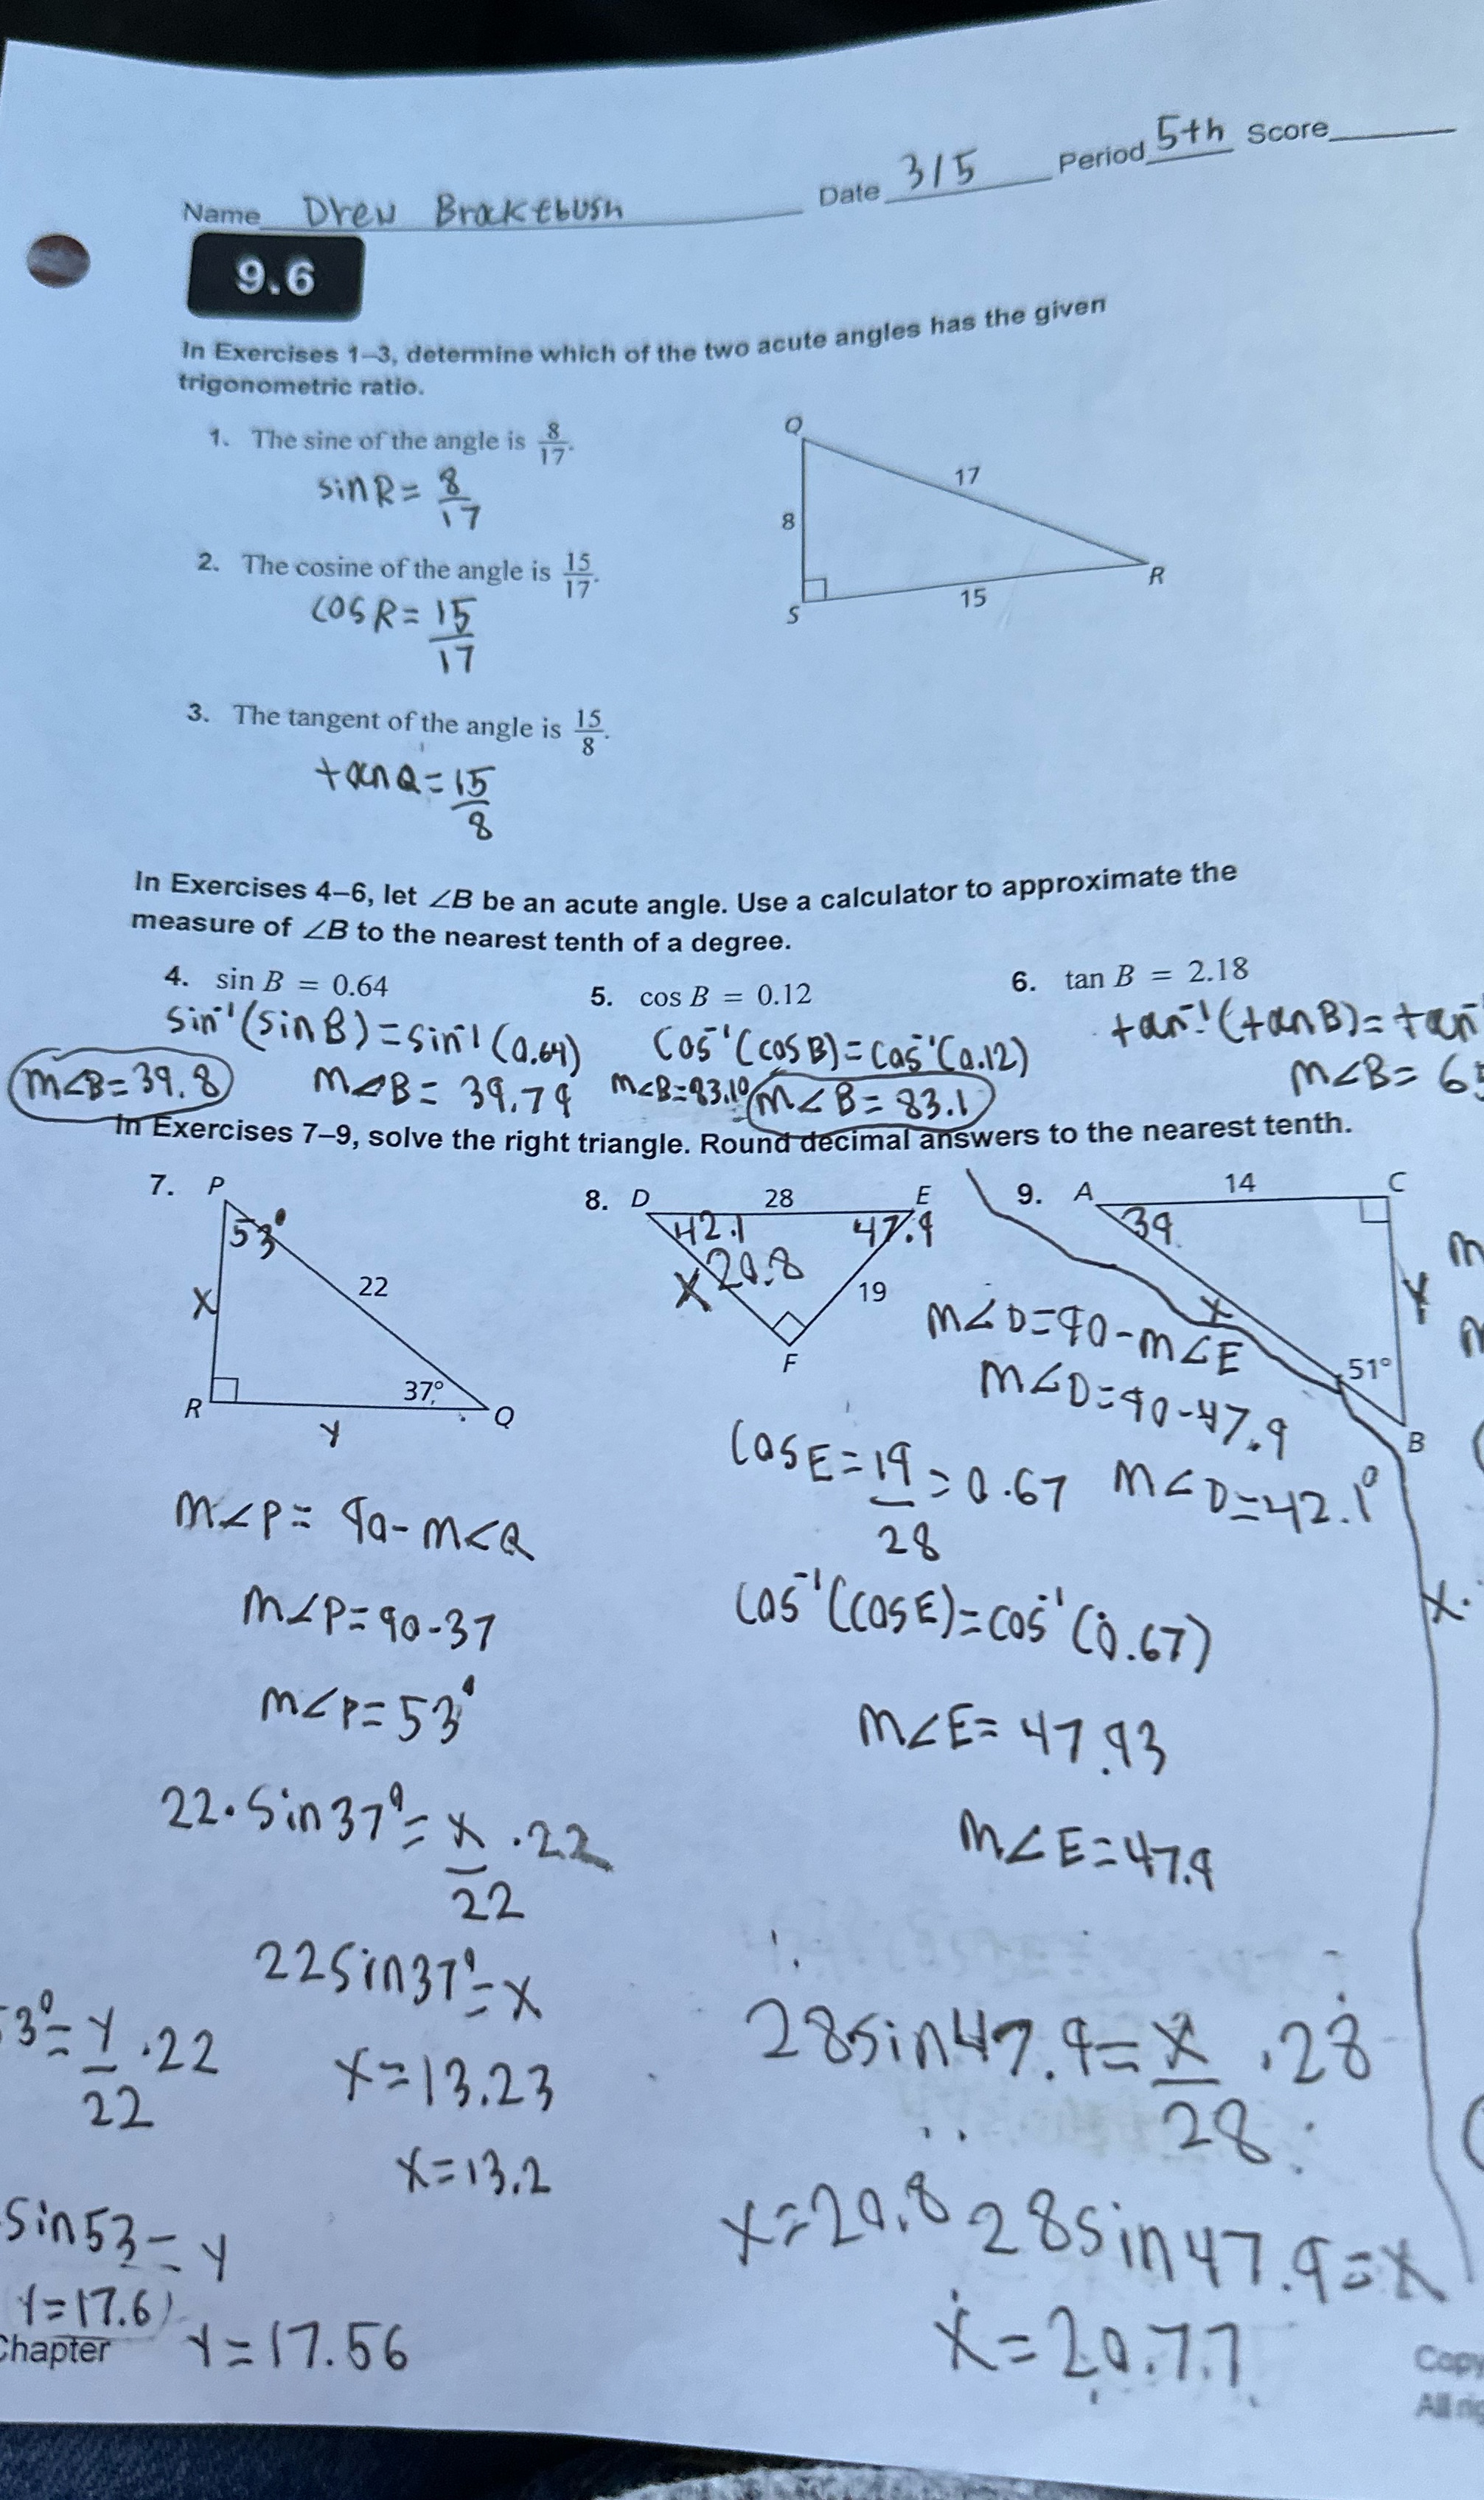 Name Drew Brakebush Date 3/5 Period 5th Score
9.6
In Exercises 1–3, determine which of the two acute angles has the given
trigonometric ratio.
1. The sine of the angle is 8/17.
sin R = 8/17
2. The cosine of the angle is 15/17.
cos R = 15/17
3. The tangent of the angle is 15/8.
tan Q = 15/8
Q
17
8
S
15
R
In Exercises 4–6, let ∠B be an acute angle. Use a calculator to approximate the
measure of ∠B to the nearest tenth of a degree.
4. sin B = 0.64
sin⁻¹(sin B) = sin⁻¹(0.64)
m∠B = 39.8
m∠B = 39.79
5. cos B = 0.12
cos⁻¹(cos B) = cos⁻¹(0.12)
m∠B = 83.10
m∠B = 83.1
6. tan B = 2.18
tan⁻¹(tan B) = tan⁻
m∠B = 6
In Exercises 7–9, solve the right triangle. Round decimal answers to the nearest tenth.
7. P
53°
x
22
37°
R
y
Q
m∠P = 90 - m∠Q
m∠P = 90 - 37
m∠P = 53°
22 · sin 37° = x/22 · 22
22 sin 37° = x
x = 13.23
x = 13.2
3° = y/22 · 22
sin 53 = y
y = 17.6
y = 17.56
8. D 28 E
42.1 47.9
x 20.8
19
F
m∠D = 90 - m∠E
m∠D = 90 - 47.9
m∠D = 42.1°
cos E = 19/28 = 0.67
cos⁻¹(cos E) = cos⁻¹(0.67)
m∠E = 47.93
m∠E = 47.9
28 sin 47.9 = x/28 · 28
28 sin 47.9 = x
x = 20.77
x = 20.8
9. A 14 C
39
x
y
51°
B
m
m
x.
Chapter
Copy
All rig